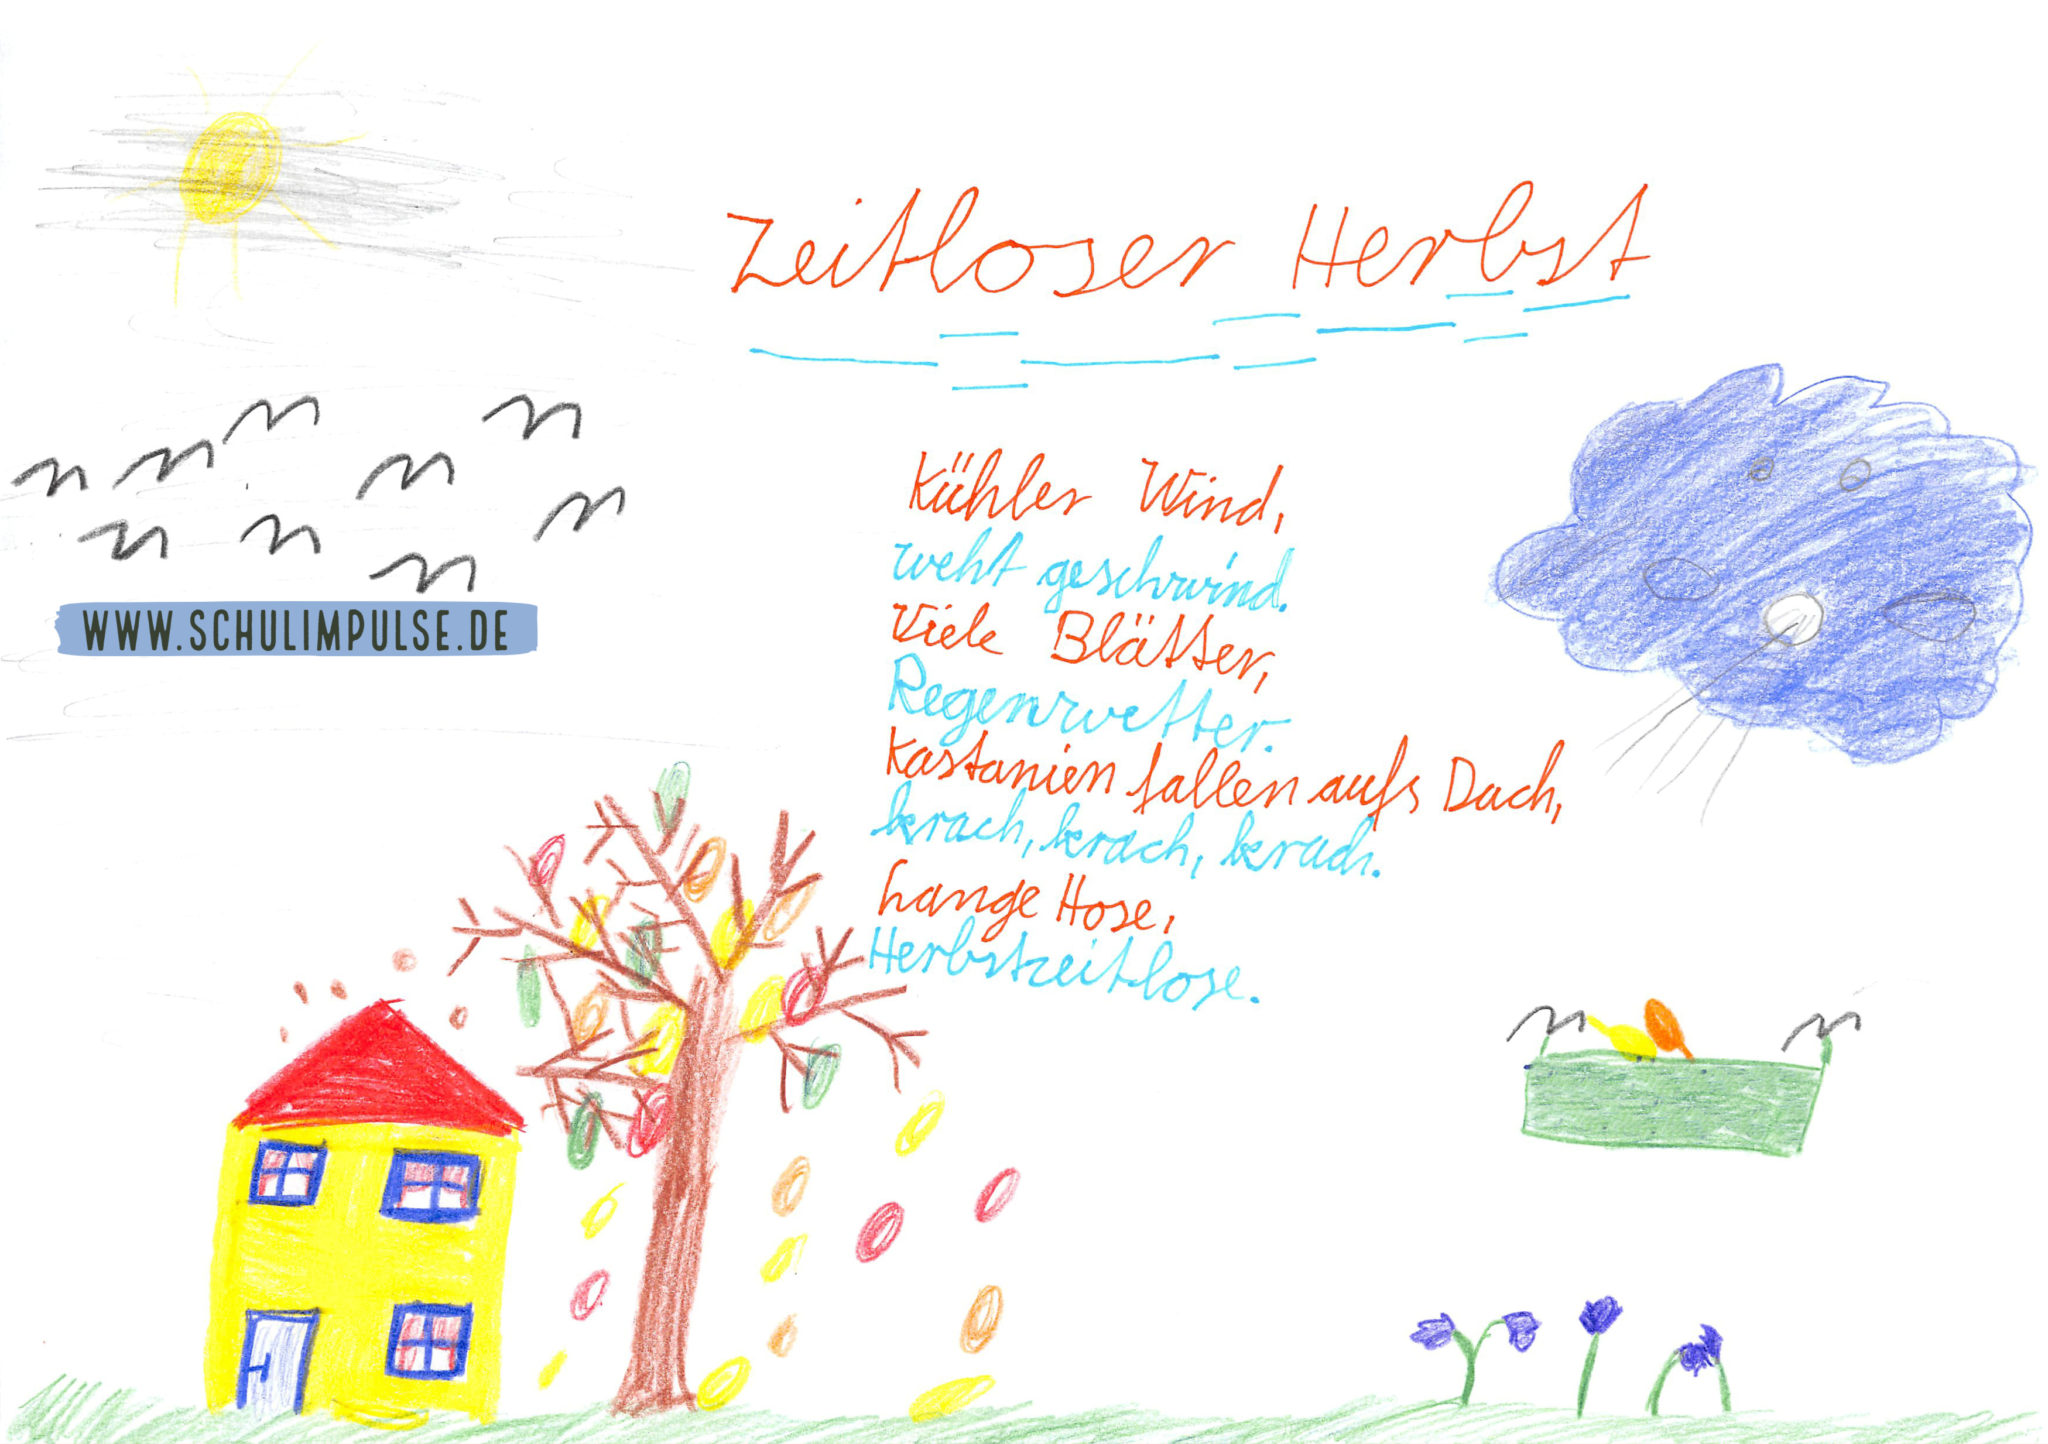 Zeitloser Herbst
Kühler Wind,
weht geschwind.
Viele Blätter,
Regenwetter.
Kastanien fallen aufs Dach,
krach, krach, krach.
Lange Hose,
Herbstzeitlose.
WWW.SCHULIMPULSE.DE